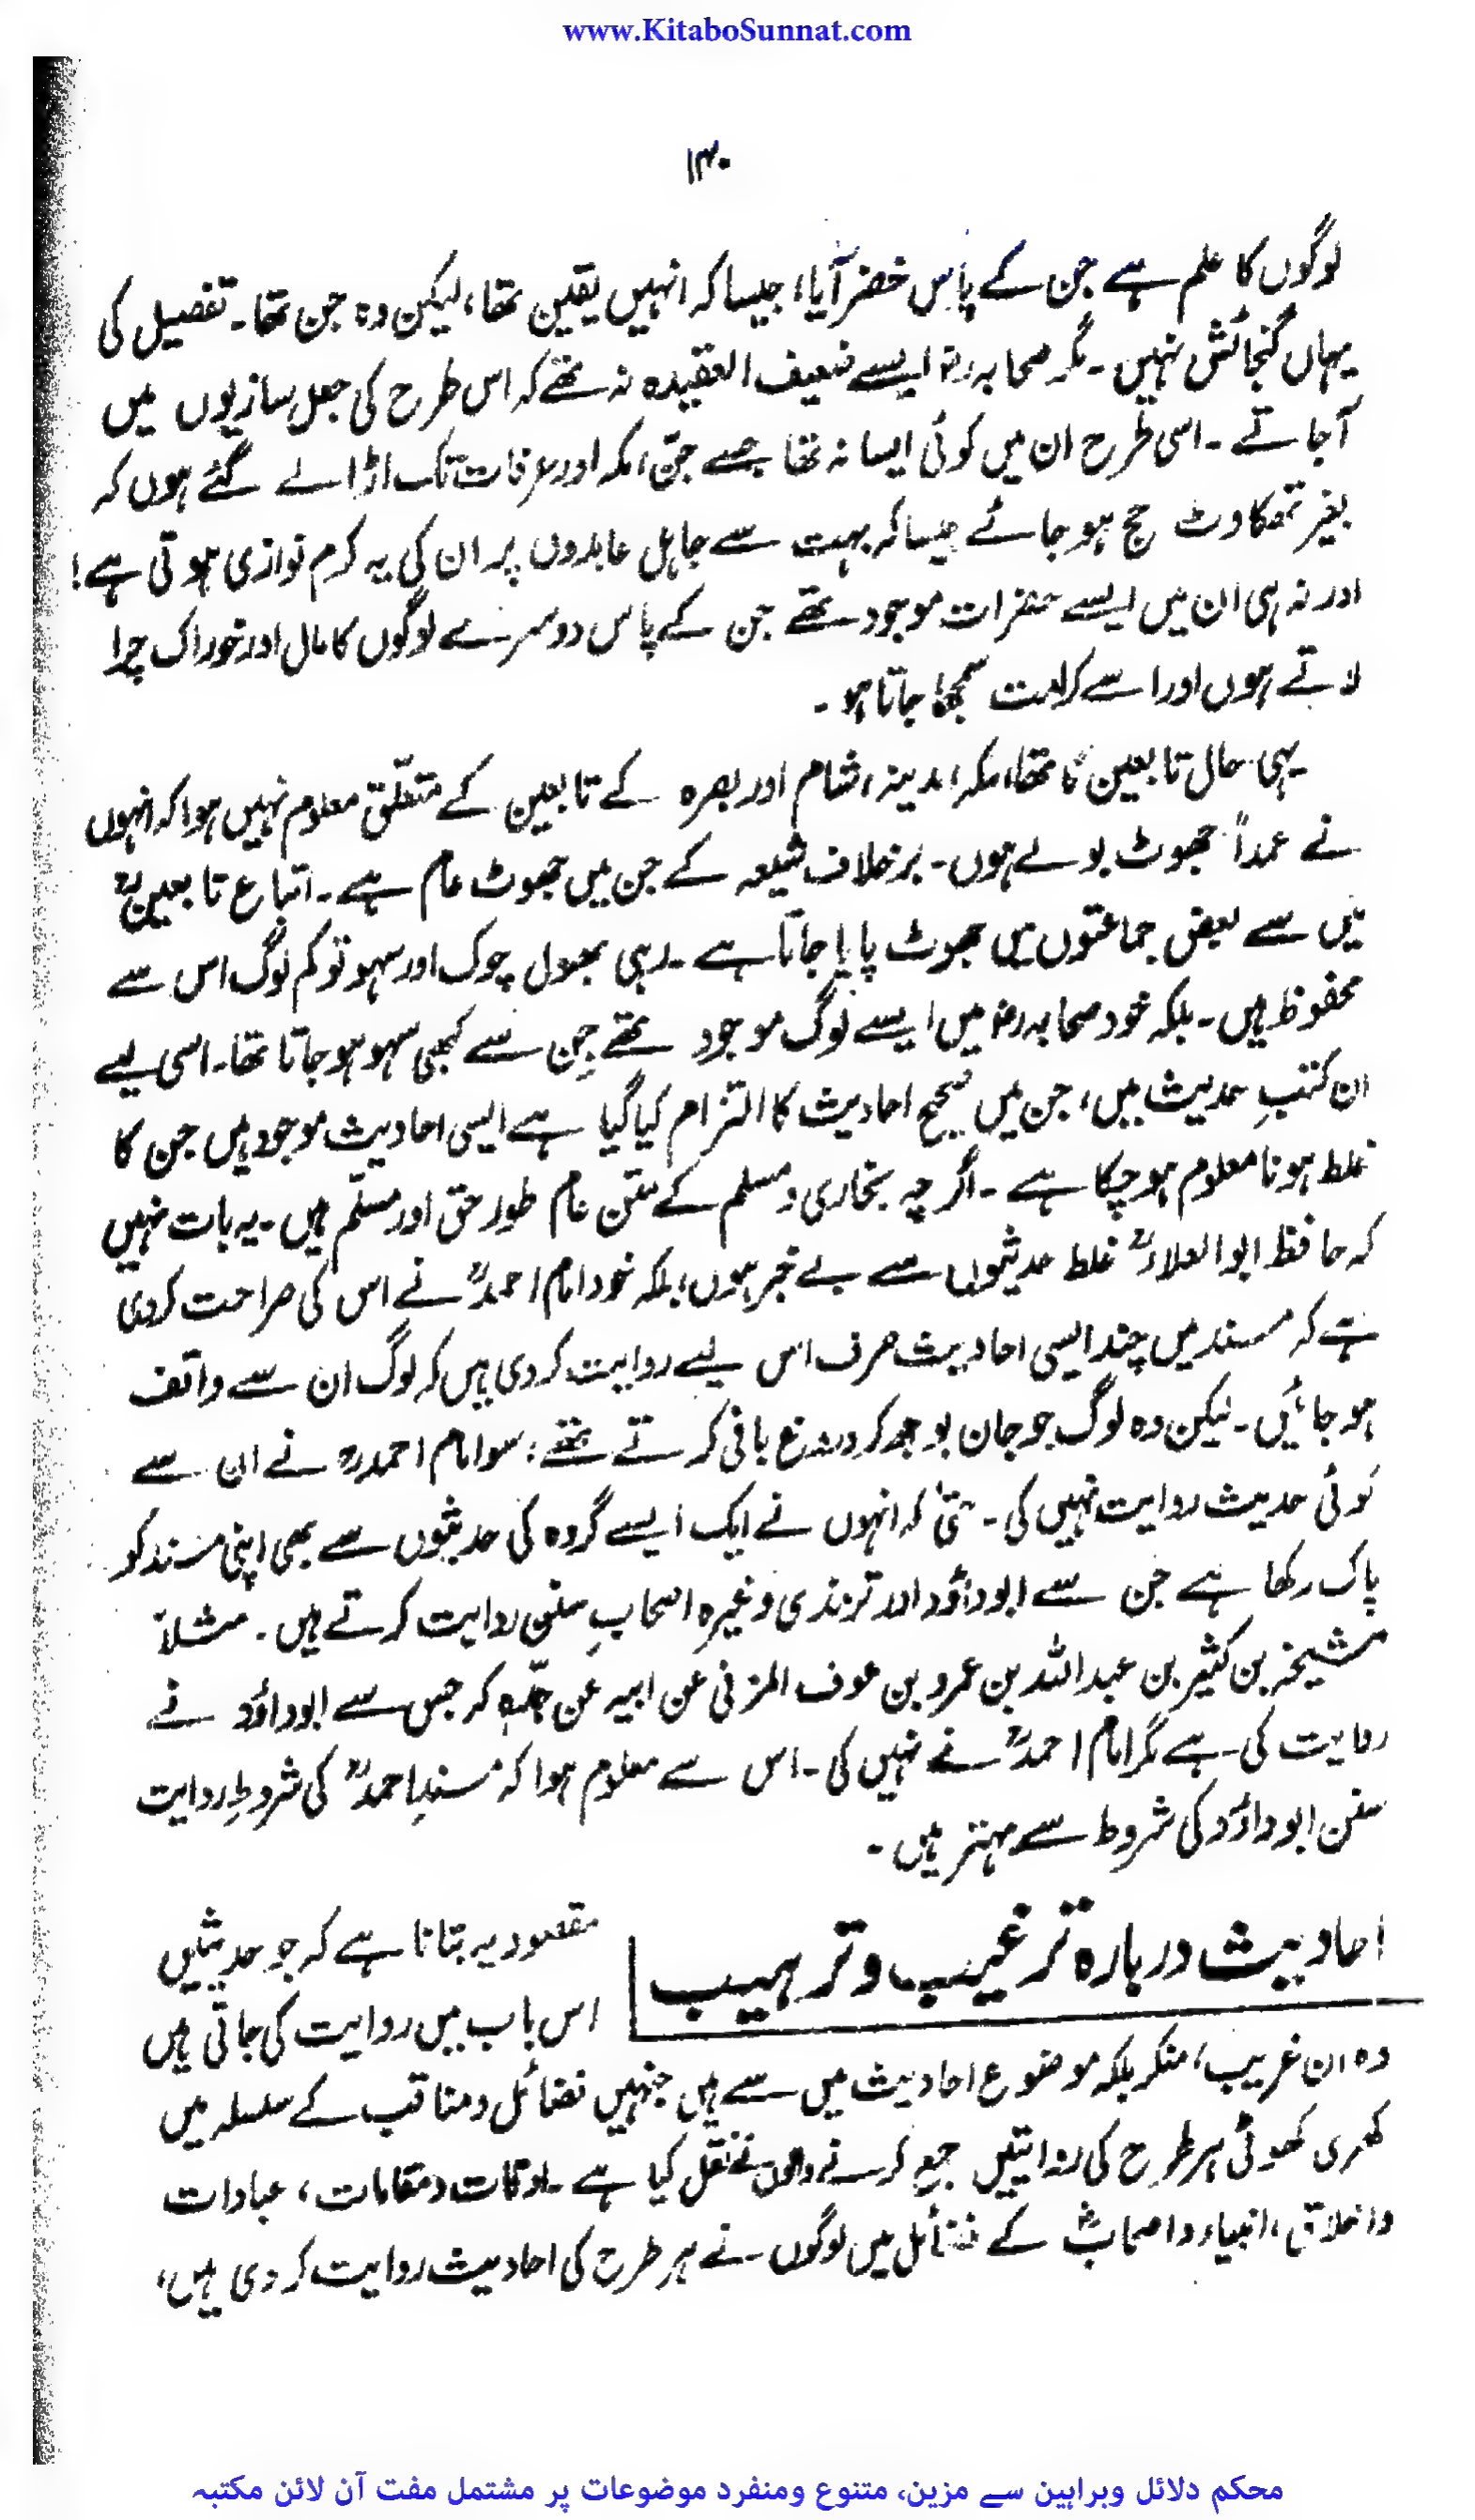 www.KitaboSunnat.com
۱۳۰
لوگوں کا علم ہے جن کے پاس خضر آیا، جیسا کہ انہیں یقین تھا، لیکن وہ جن تھا۔ تفصیل کی
یہاں گنجائش نہیں۔ مگر صحابہ رضہ ایسے ضعیف العقیدہ نہ تھے کہ اس طرح کی جعل سازیوں میں
آجاتے۔ اسی طرح ان میں کوئی ایسا نہ تھا جسے جنّ، مکہ اور عرفات تک اڑا لے گئے ہوں کہ
بغیر تھکاوٹ حج ہو جائے جیسا کہ بہت سے جاہل عابدوں پر ان کی یہ کرم نوازی ہوتی ہے!
اور نہ ہی ان میں ایسے حضرات موجود تھے جن کے پاس دوسرے لوگوں کا مال اور خوراک چرا
لاتے ہوں اور اسے کرامت سمجھا جاتا ہو۔
یہی حال تابعین کا تھا، مکہ، مدینہ، شام اور بصرہ کے تابعین کے متعلّق معلوم نہیں ہوا کہ انہوں
نے عمداً جھوٹ بولے ہوں۔ برخلاف شیعہ کے جن میں جھوٹ عام ہے۔ اتباع تابعینؒ
میں سے بعض جماعتوں میں جھوٹ پایا جاتا ہے۔ رہی بھول چوک اور سہو تو کم لوگ اس سے
محفوظ ہیں۔ بلکہ خود صحابہ رضہ میں ایسے لوگ موجود تھے جن سے کبھی سہو ہو جاتا تھا۔ اسی لیے
ان کتبِ حدیث میں، جن میں صحیح احادیث کا التزام کیا گیا ہے ایسی احادیث موجود ہیں جن کا
غلط ہونا معلوم ہو چکا ہے۔ اگرچہ بخاری و مسلم کے متن عام طور حق اور مسلّم ہیں۔ یہ بات نہیں
کہ حافظ ابوالعلاءؒ غلط حدیثوں سے بے خبر ہوں، بلکہ خود امام احمدؒ نے اس کی صراحت کردی
ہے کہ مسند میں چند ایسی احادیث صرف اس لیے روایت کردی ہیں کہ لوگ ان سے واقف
ہو جائیں۔ لیکن وہ لوگ جو جان بوجھ کر دروغ بافی کرتے تھے، سو امام احمدرہ نے ان سے
کوئی حدیث روایت نہیں کی۔ حتیٰ کہ انہوں نے ایک ایسے گروہ کی حدیثوں سے بھی اپنی مسند کو
پاک رکھا ہے جن سے ابوداؤد اور ترمذی وغیرہ اصحابِ سنن روایت کرتے ہیں۔ مثلاً
مشیخہ بن کثیر بن عبداللہ بن عمرو بن عوف المزنی عن ابیہ عن جدّہ کہ جس سے ابوداؤد نے
روایت کی ہے مگر امام احمدؒ نے نہیں کی۔ اس سے معلوم ہوا کہ مسندِ احمدؒ کی شروطِ روایت
سنن ابوداؤد کی شروط سے بہتر ہیں۔
احادیث دربارہ ترغیب و ترہیب
مقصود یہ بتانا ہے کہ جو حدیثیں
اس باب میں روایت کی جاتی ہیں
وہ ان غریب، منکر بلکہ موضوع احادیث میں سے ہیں جنہیں فضائل و مناقب کے سلسلہ میں
کھری کھوٹی ہر طرح کی روایتیں جمع کرنے والوں نے نقل کیا ہے۔ اوقات و مقامات، عبادات
و اخلاق، انبیاء و اصحابؓ کے فضائل میں لوگوں نے ہر طرح کی احادیث روایت کر دی ہیں،
محکم دلائل وبراہین سے مزین، متنوع ومنفرد موضوعات پر مشتمل مفت آن لائن مکتبہ